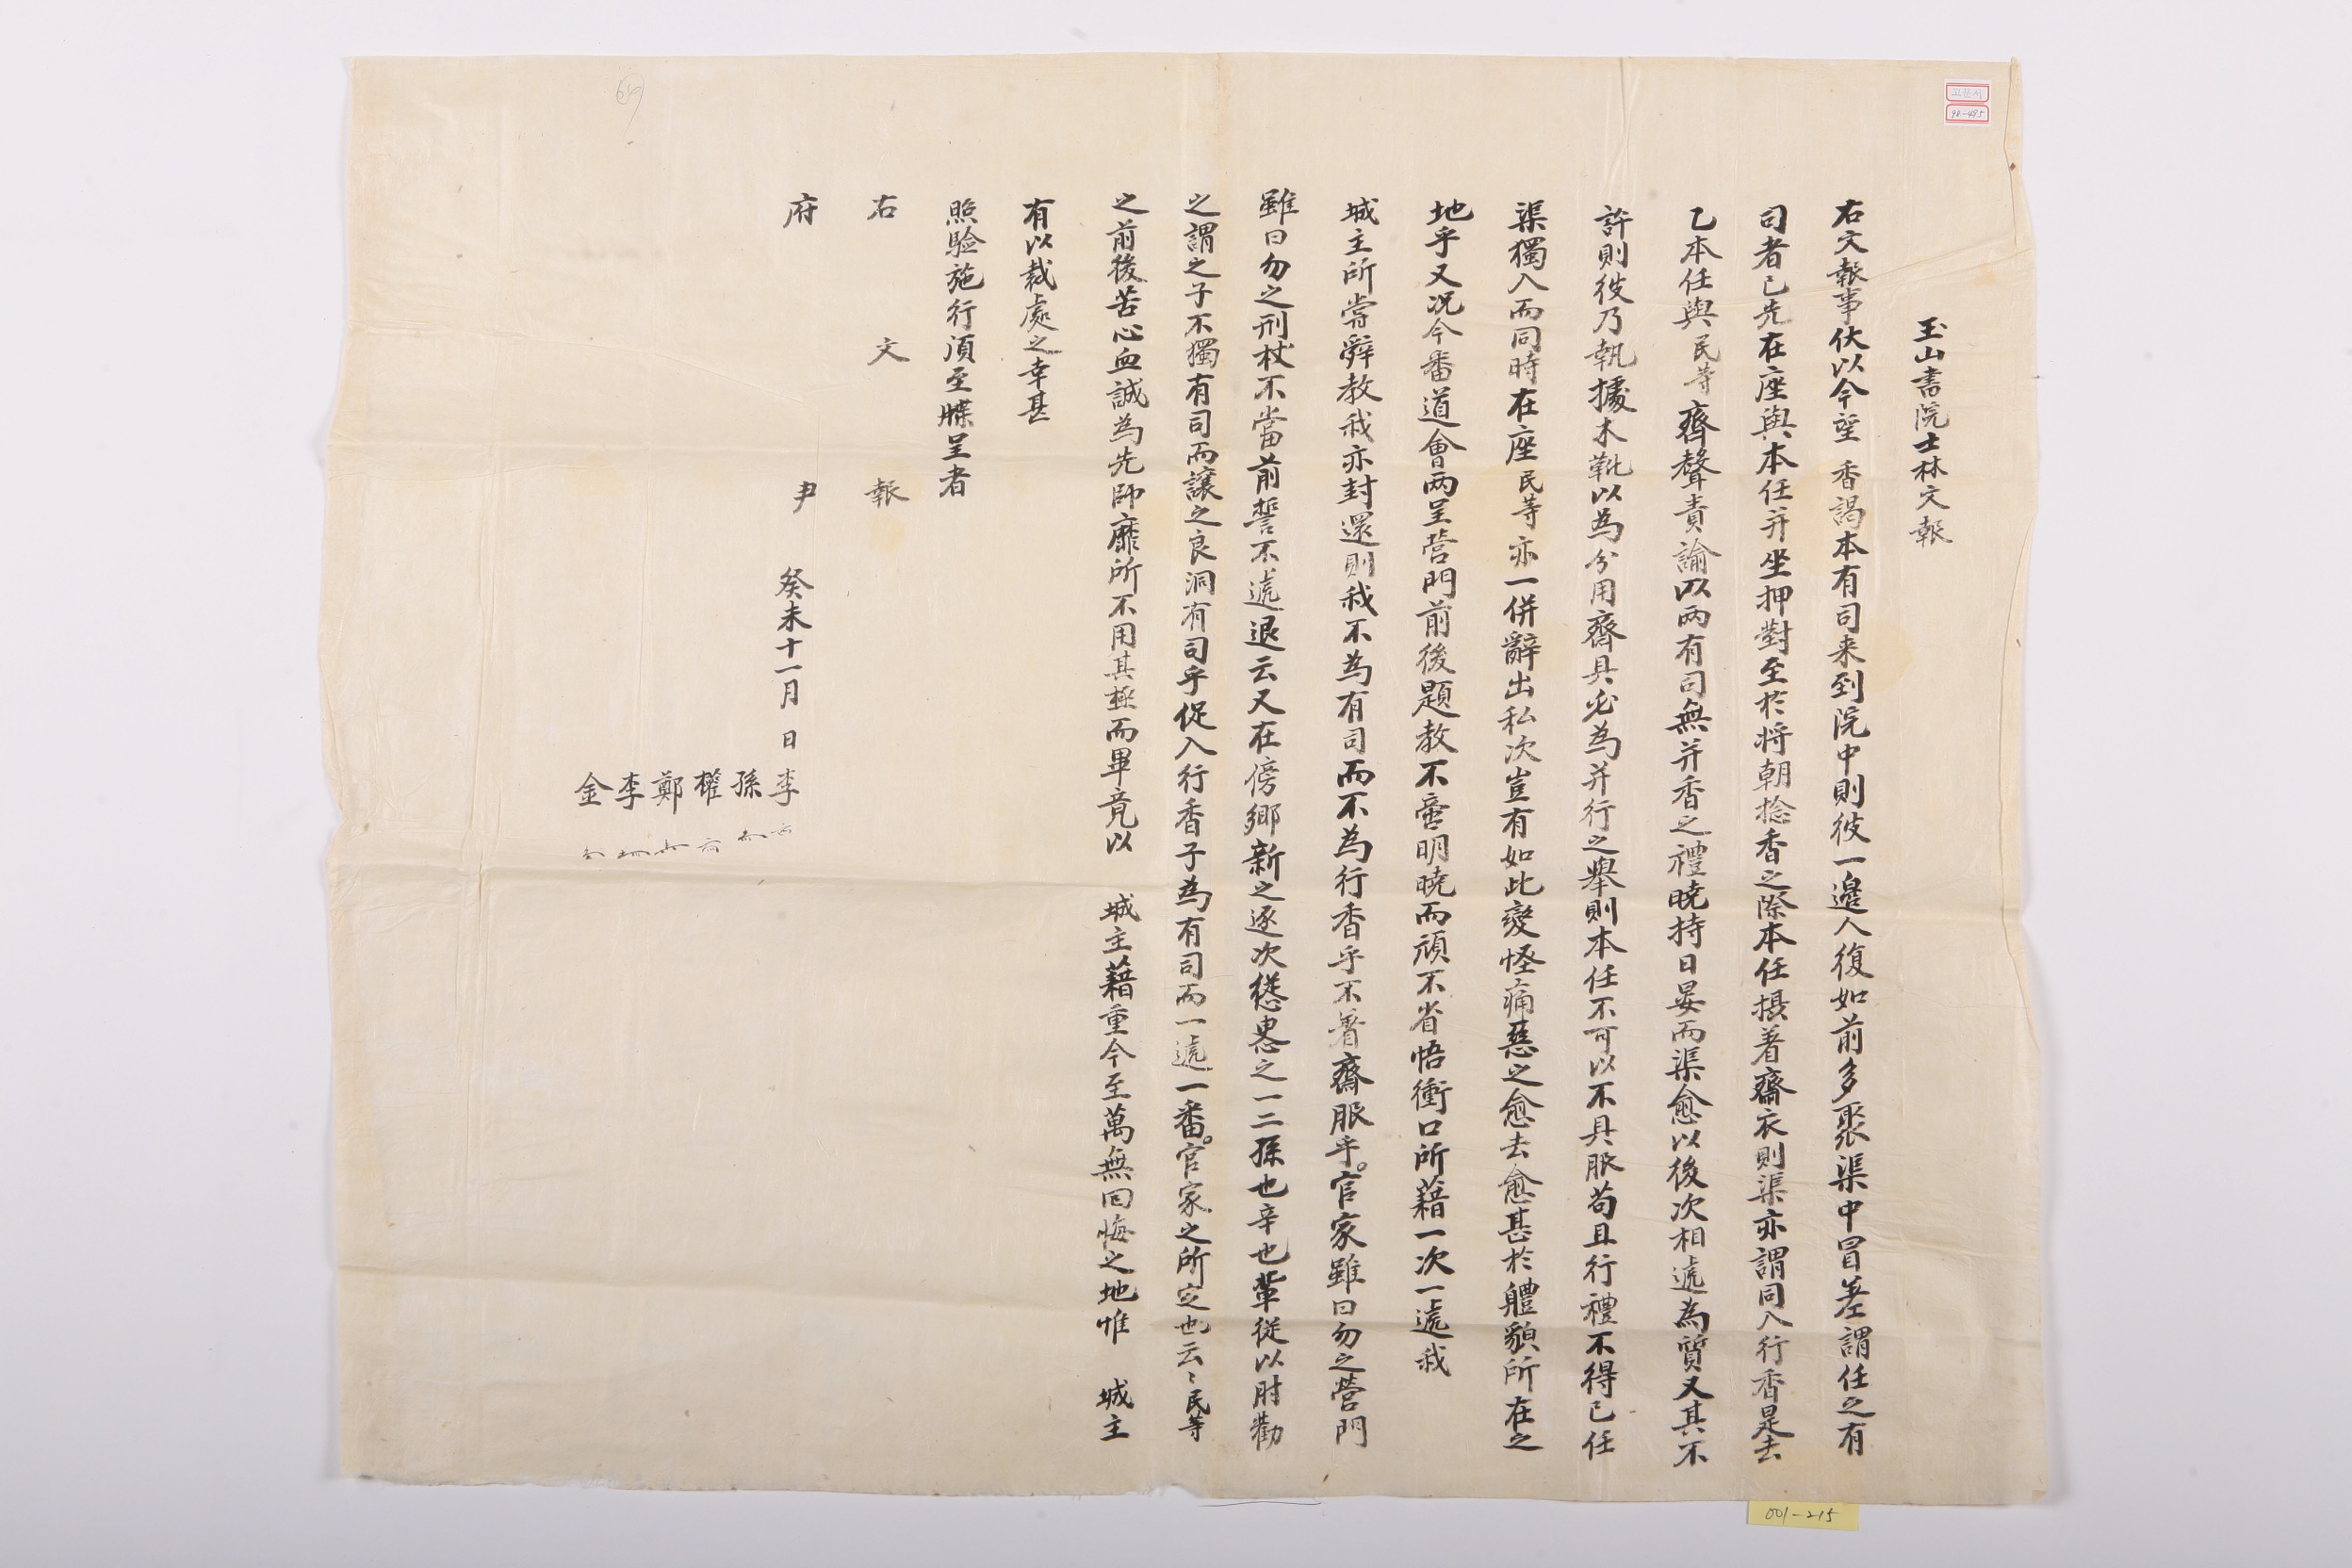 玉山書院士林文報
右文報事伏以今望 香謁本有司来到院中則彼一邊人復如前多聚渠中冒差謂任之有
司者已先在座與本任并坐押對至於将朝捻香之際本任攝着齋衣則渠亦謂同入行香是去
乙本任與民等齊聲責諭以兩有司無并香之禮曉持日晏而渠愈以後次相遞為質又其不
許則彼乃執據木靴以為分用齊具必為并行之擧則本任不可以不具服苟且行禮不得已任
渠獨入而同時在座民等亦一併辭出私次豈有如此變怪痛惡之愈去愈甚於軆貌所在之
地乎又况今番道會兩呈營門前後題教不啻明曉而頑不省悟衝口所藉一次一遞我
城主所嘗辭教我亦封還則我不為有司而不為行香乎不着齋服乎官家雖曰勿之營門
雖曰勿之刑杖不當前誓不遞退云又在傍鄉新之逐次慫恿之一二孫也辛也輩従以肘勸
之謂之子不獨有司而讓之良洞有司乎促入行香子為有司而一遞一番官家之所定也云〻民等
之前後苦心血誠為先師靡所不用其極而畢竟以 城主藉重今至萬無回悔之地惟 城主
有以裁處之幸甚
照驗施行湏至牒呈者
右 文 報
府 尹
癸未十一月 日 李
孫
權
鄭
李
金
고문서
90-495
001-215
64